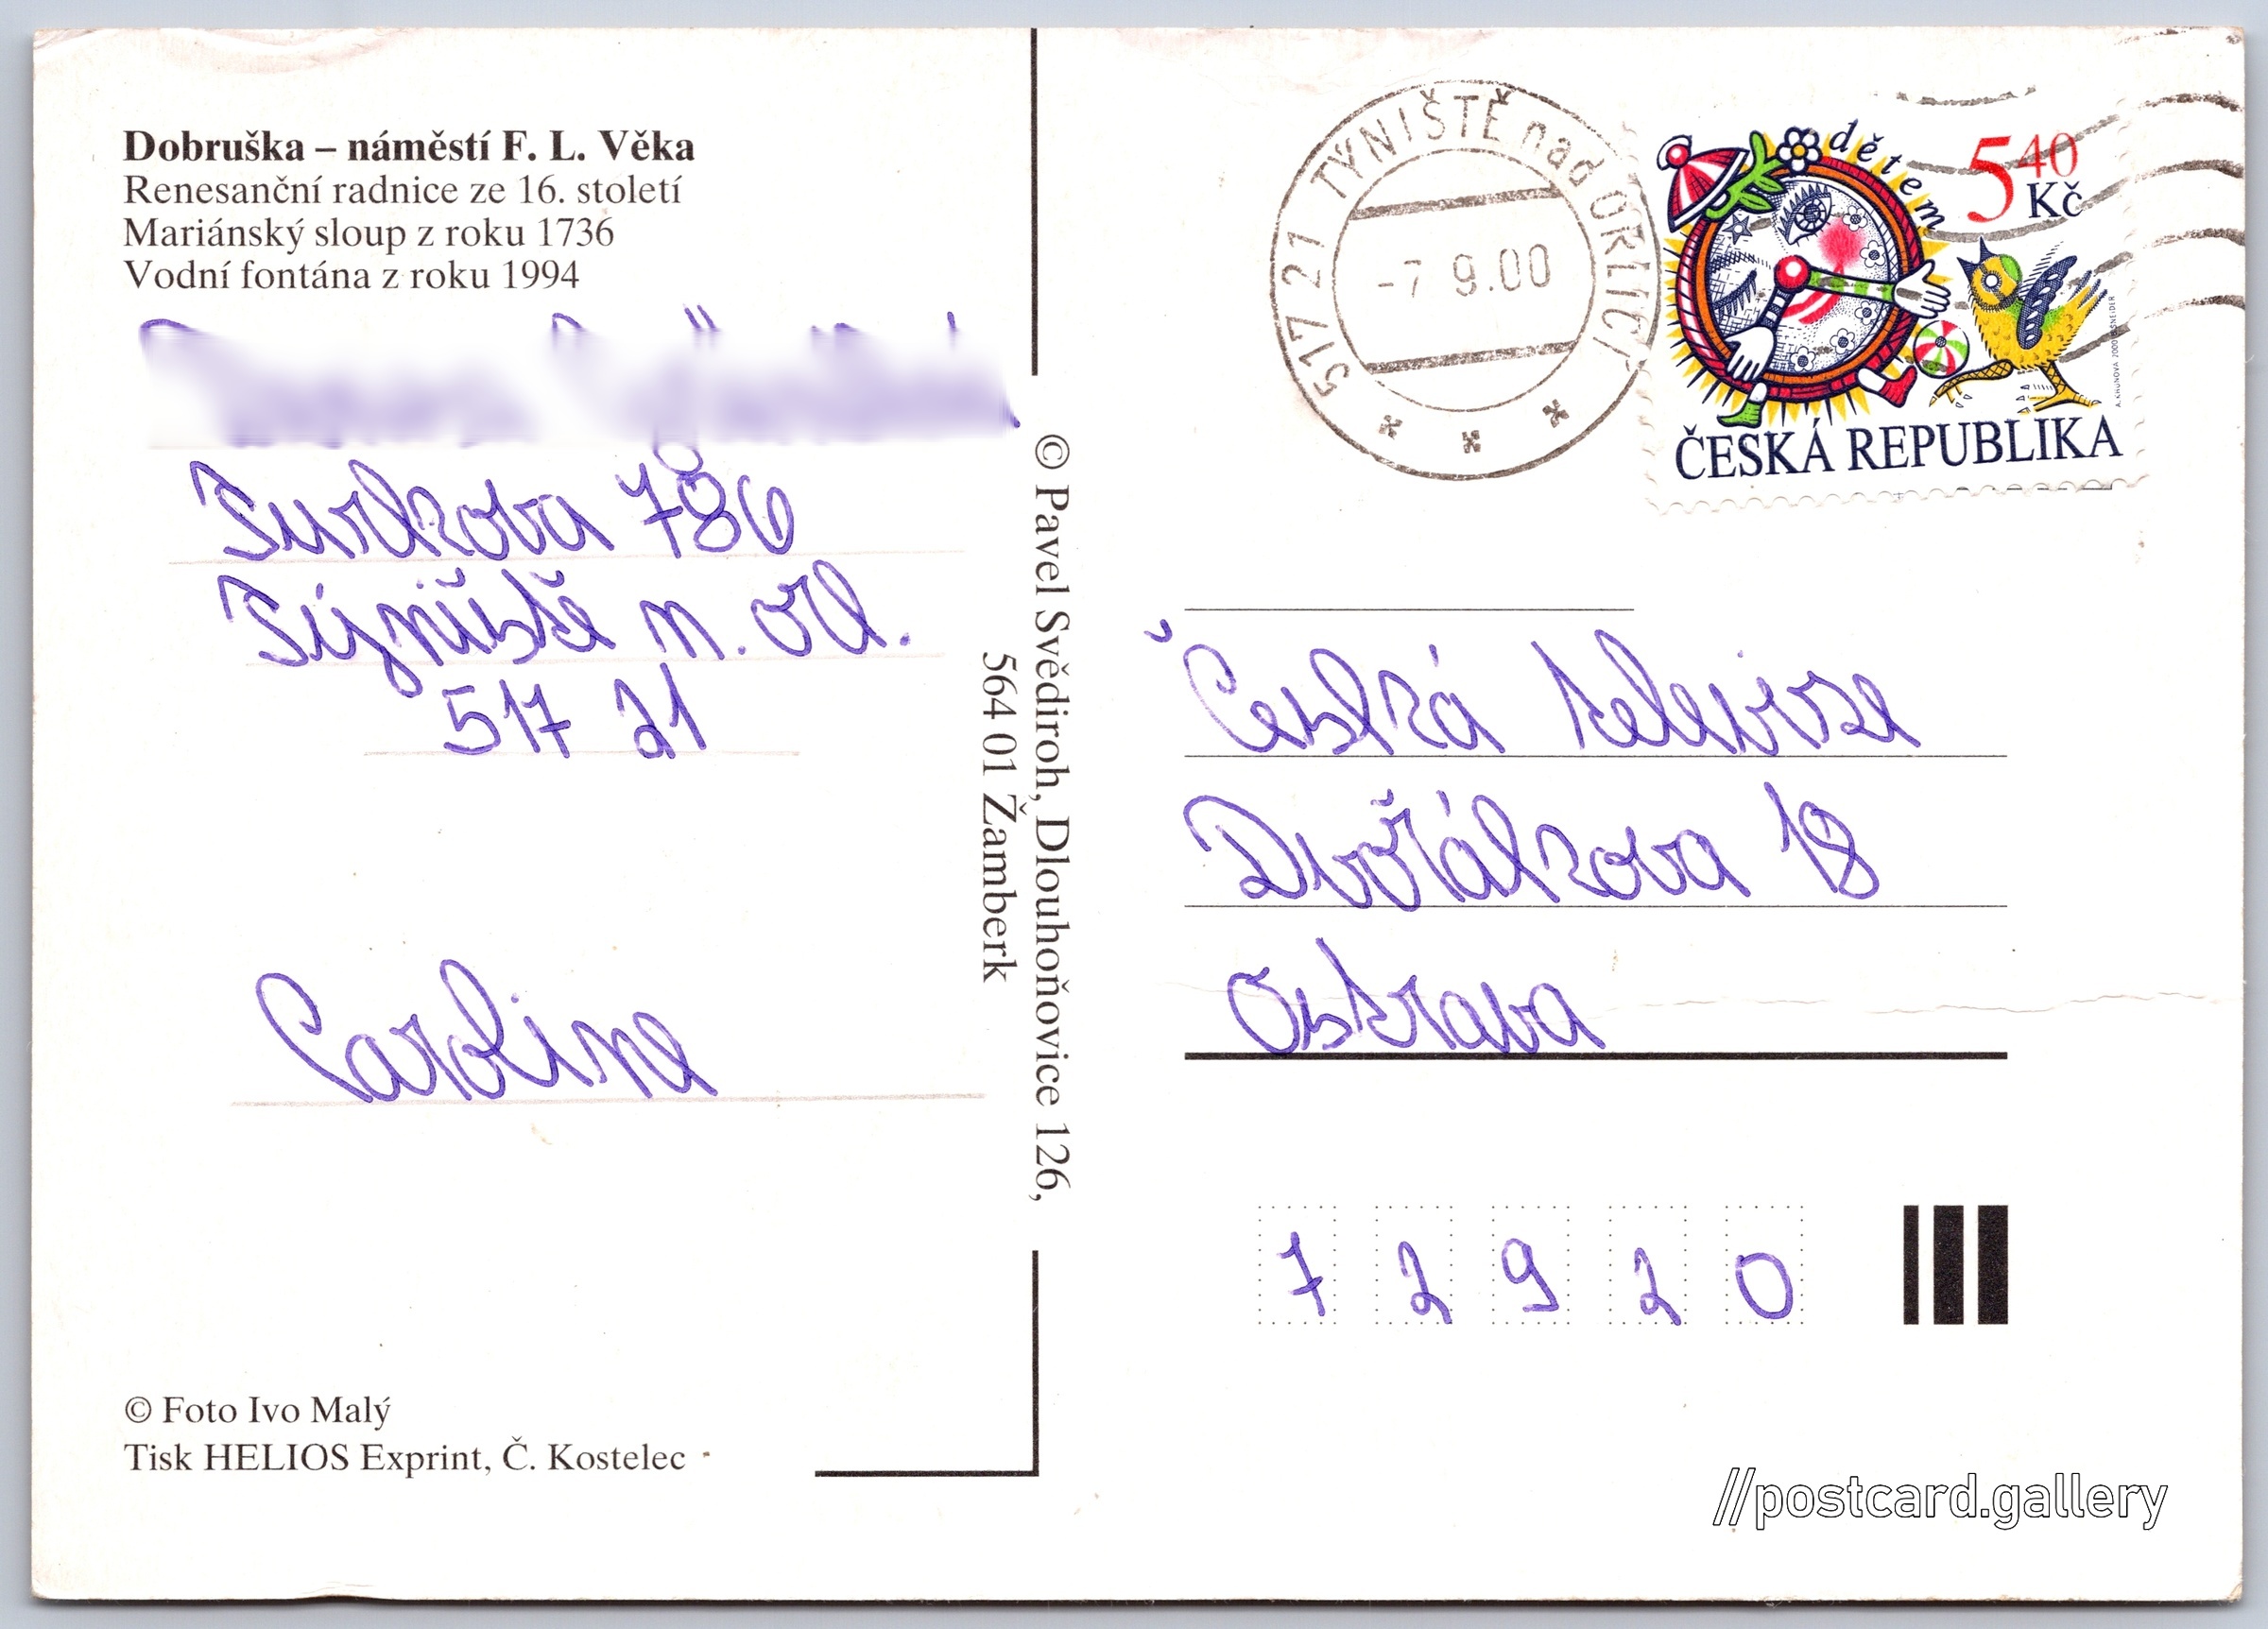 Dobruška – náměstí F. L. Věka
Renesanční radnice ze 16. století
Mariánský sloup z roku 1736
Vodní fontána z roku 1994
Turkova 786
Týniště n. Orl.
517 21
Caroline
© Foto Ivo Malý
Tisk HELIOS Exprint, Č. Kostelec
© Pavel Svědiroh, Dlouhoňovice 126,
564 01 Žamberk
517 21 TÝNIŠTĚ nad ORLICÍ
-7 9.00
dětem
5 40
Kč
ČESKÁ REPUBLIKA
Česká televize
Dvořákova 18
Ostrava
7 2 9 2 0
//postcard.gallery